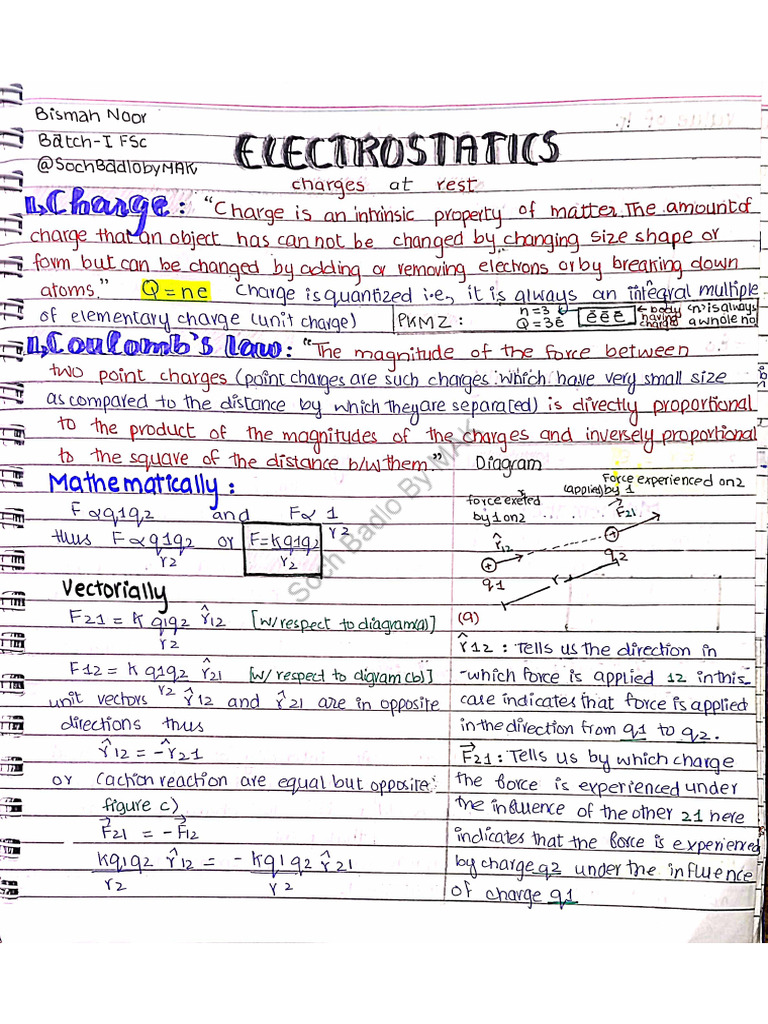 Bismah Noor
Batch-I FSc
@SochBadlobyMAK
ELECTROSTATICS
charges at rest
1, Charge: "Charge is an intrinsic property of matter. The amount of
charge that an object has can not be changed by changing size shape or
form but can be changed by adding or removing electrons or by breaking down
atoms." Q=ne Charge is quantized i.e, it is always an integral multiple
of elementary charge (unit charge)
PKMZ: n=3
Q=3e
ē ē ē
← body having charges
<n> is always a whole no
1, Coulomb's law: "The magnitude of the force between
two point charges (point charges are such charges which have very small size
as compared to the distance by which they are separated) is directly proportional
to the product of the magnitudes of the charges and inversely proportional
to the square of the distance b/w them."
Mathematically:
F ∝ q1q2 and F ∝ 1
r2
thus F ∝ q1q2 or F=kq1q2
r2 r2
Vectorially
F21 = K q1q2 r̂12 [w/respect to diagram(a)]
r2
F12 = K q1q2 r̂21 [w/respect to digram(b)]
r2
unit vectors r̂12 and r̂21 are in opposite
directions thus
r̂12 = -r̂21
or (action reaction are equal but opposite:
figure c)
F⃗21 = -F⃗12
kq1q2 r̂12 = - kq1q2 r̂21
r2 r2
Diagram
force exeted
by 1 on 2
Force experienced on 2
(applied) by 1
F⃗21
r̂12
+
q1
+
q2
r
(a)
r̂12: Tells us the direction in
which force is applied 12 in this
case indicates that force is applied
in the direction from q1 to q2.
F⃗21: Tells us by which charge
the force is experienced under
the influence of the other 21 here
indicates that the force is experienced
by charge q2 under the influence
of charge q1
Soch Badlo By MAK